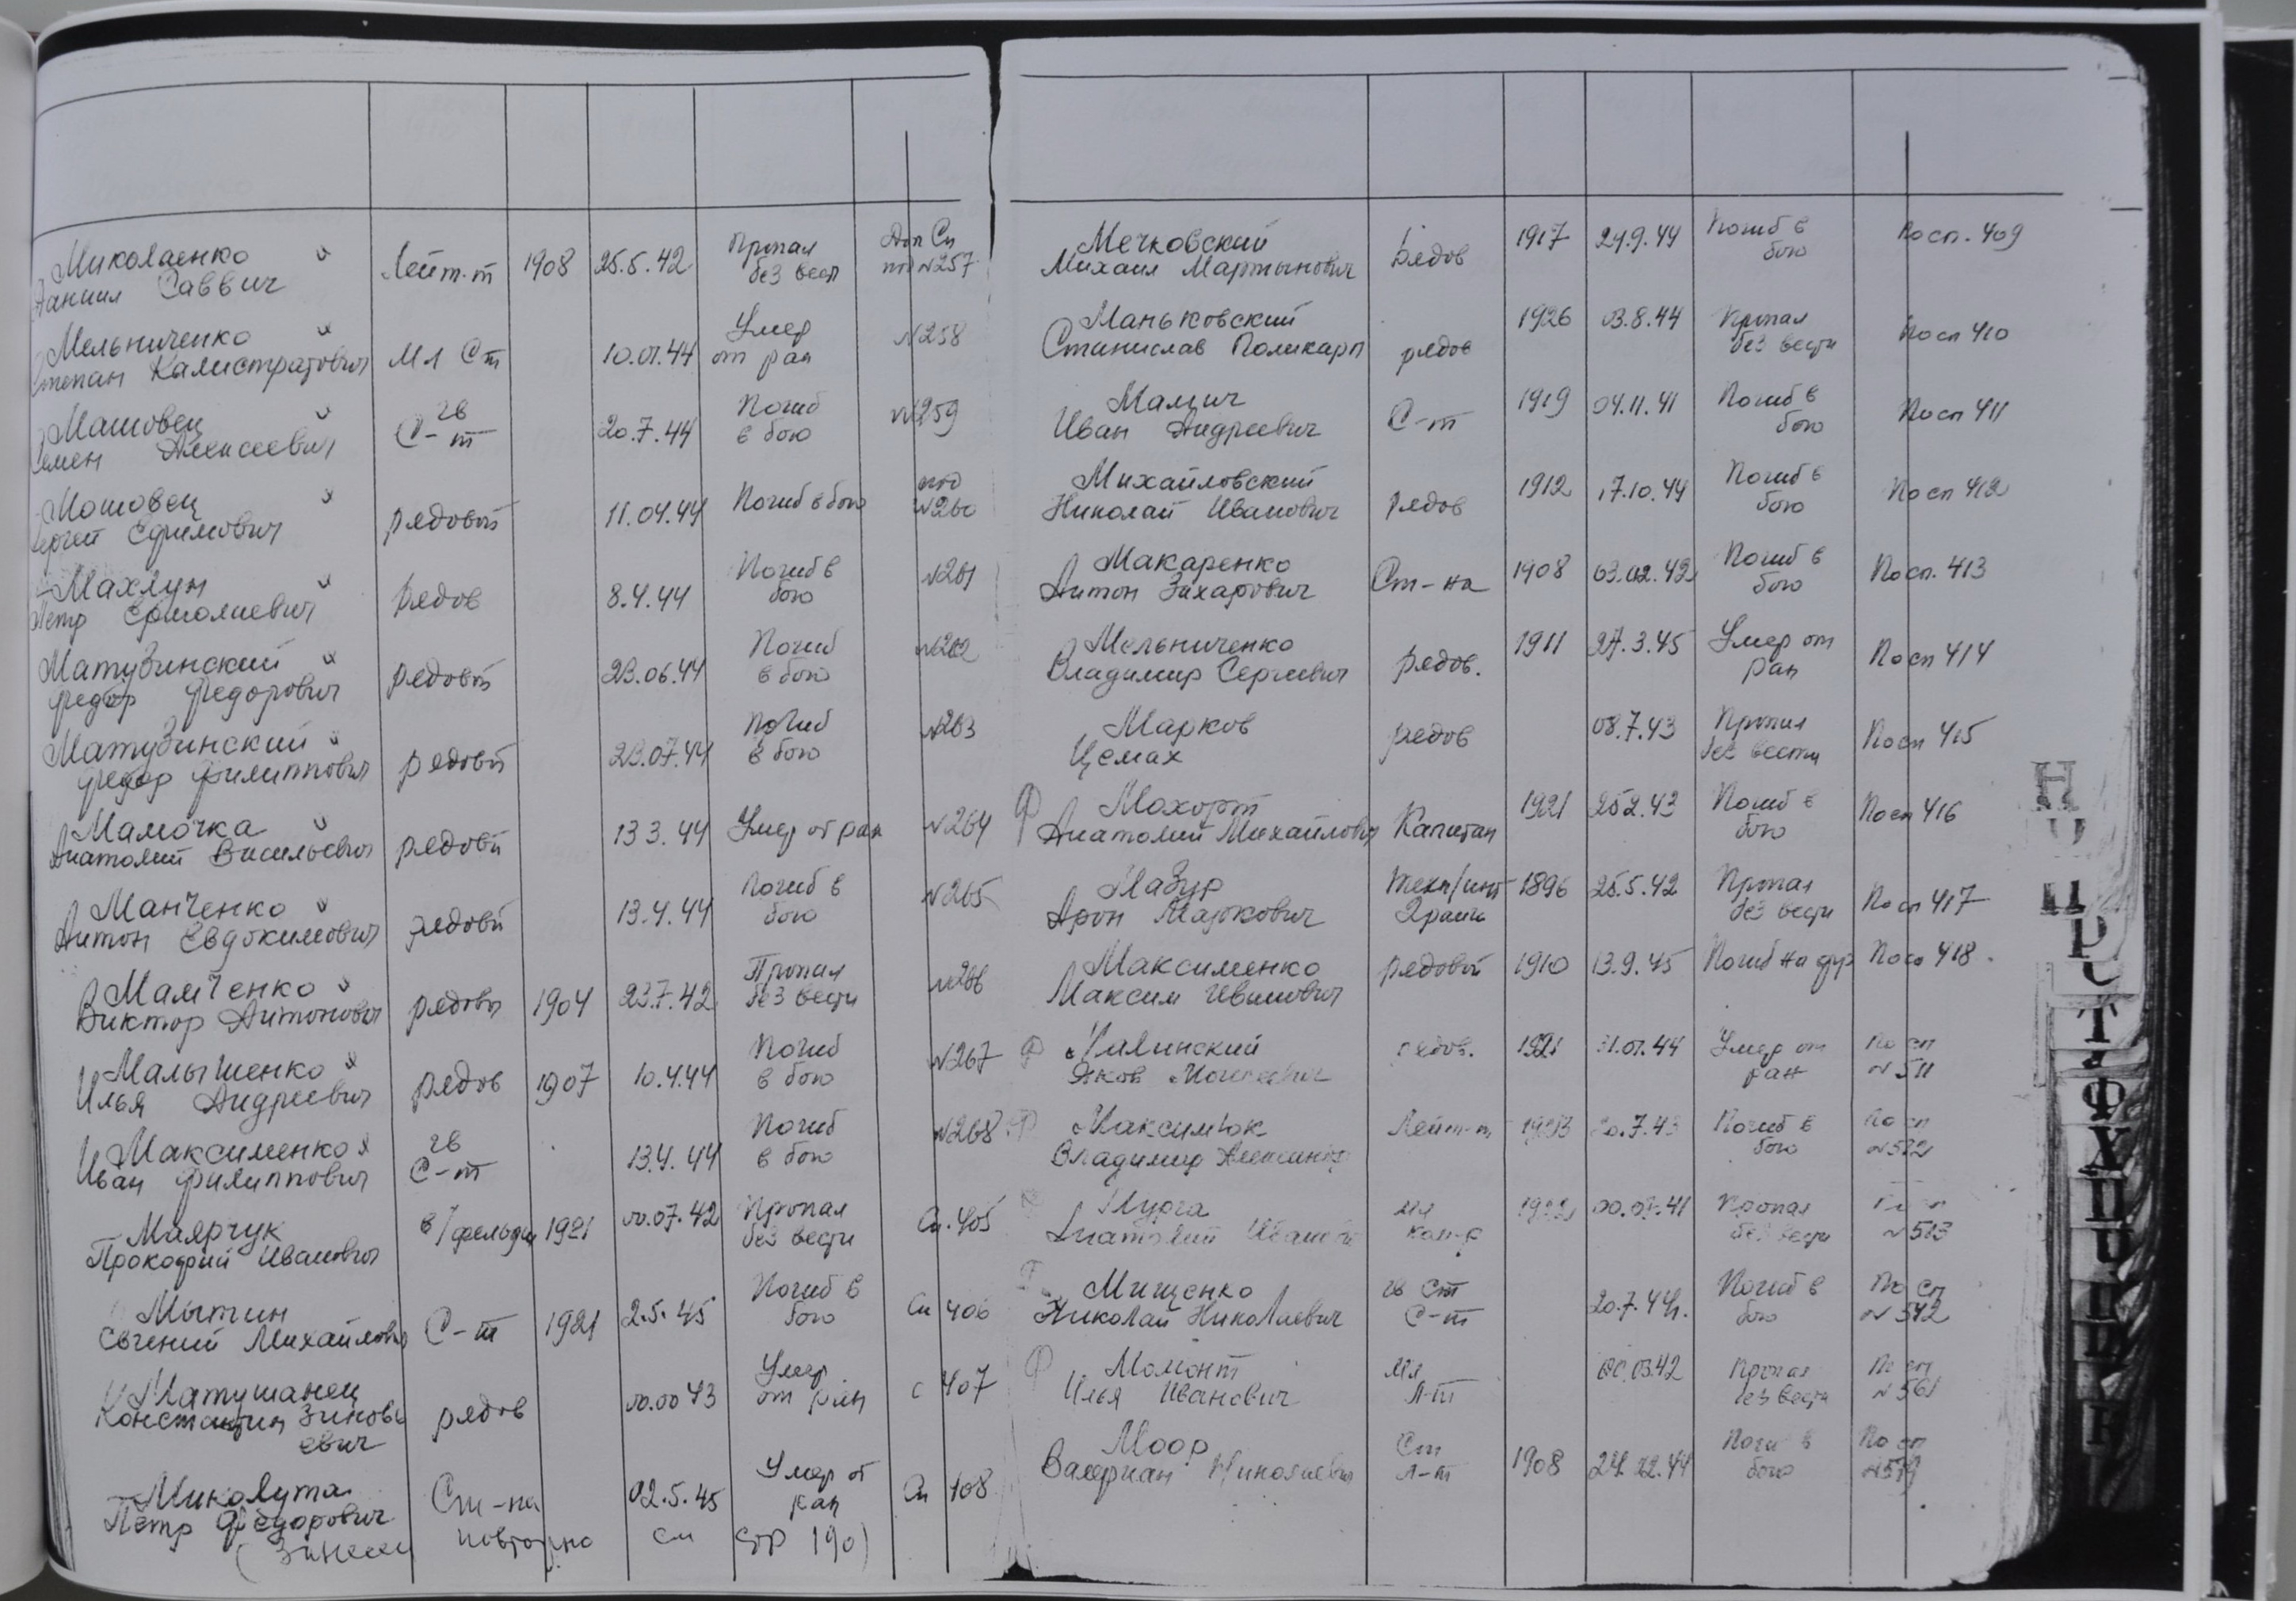 Миколаенко " Лейт-т 1908 25.5.42 Пропал без вест Доп Сп №257
Даниил Саввич
Мельниченко " Мл Ст 10.01.44 Умер от ран №258
Степан Калистратович
Машовец " гв С-т 20.7.44 Погиб в бою №259
Семен Алексеевич
Мошовец " рядовой 11.04.44 Погиб в бою №260
Сергей Ефимович
Махлун " рядов 8.4.44 Погиб в бою №261
Петр Ермолаевич
Матузинский " рядовой 23.06.44 Погиб в бою №262
Федор Федорович
Матузинский " рядовой 23.07.44 Погиб в бою №263
Федор Филиппович
Мамочка " рядовой 13 3.44 Умер от ран №264
Анатолий Васильевич
Манченко " рядовой 13.4.44 Погиб в бою №265
Антон Евдокимович
Мамченко " рядовы 1904 23.7.42 Пропал без вести №266
Виктор Антонович
Малышенко " рядов 1907 10.4.44 Погиб в бою №267
Илья Андреевич
Максименко " гв С-т 13.4.44 Погиб в бою №268
Иван Филиппович
Маярчук в/фельдш 1921 00.07.42 Пропал без вести Сп.405
Прокофий Иванович
Мытин С-т 1921 2.5.45 Погиб в бою Сп 406
Евгений Михайлович
Матушанец рядов 00.00 43 Умер от ран С 407
Константин Зиновь
евич
Миколута Ст-на 02.5.45 Умер от ран Сп 408
Петр Федорович
(Занесен повторно см стр 190)
Мечковский рядов 1917 29.9.44 Погиб в бою По сп. 409
Михаил Мартынович
Маньковский рядов 1926 03.8.44 Пропал без вести По сп 410
Станислав Поликарп
Мамич С-т 1919 04.11.41 Погиб в бою По сп 411
Иван Андреевич
Михайловский рядов 1912 17.10.44 Погиб в бою По сп 412
Николай Иванович
Макаренко Ст-на 1908 03.02.42 Погиб в бою По сп. 413
Антон Захарович
Мельниченко рядов. 1911 27.3.45 Умер от ран По сп 414
Владимир Сергеевич
Марков рядов 08.7.43 Пропал без вести По сп 415
Цемах
Ф Мохорт Капитан 1921 25 2.43 Погиб в бою По сп 416
Анатолий Михайлович
Мазур техн/инт 2 ранга 1896 25.5.42 Пропал без вести По сп 417
Арон Маркович
Максименко рядовой 1910 13.9.45 Погиб на фр По сп 418.
Максим Иванович
Ф Малинский рядов. 1921 31.01.44 Умер от ран По сп №511
Яков Моисеевич
Ф Максимюк Лейт-т 20.7.43 Погиб в бою По сп
Владимир
Мурга мл ком-р 00.07.41 Пропал без вести №513
Анатолий Иванов
Мищенко гв Ст С-т 20.7.44. Погиб в бою По Сп №542
Николай Николаевич
Ф Момонт Мл Л-т 00.03.42 Пропал без вести По сп №561
Илья Иванович
Моор Ст Л-т 1908 Погиб в бою По сп
Валериан Николаевич
Н
Ц
Р
С
Т
Ф
Х